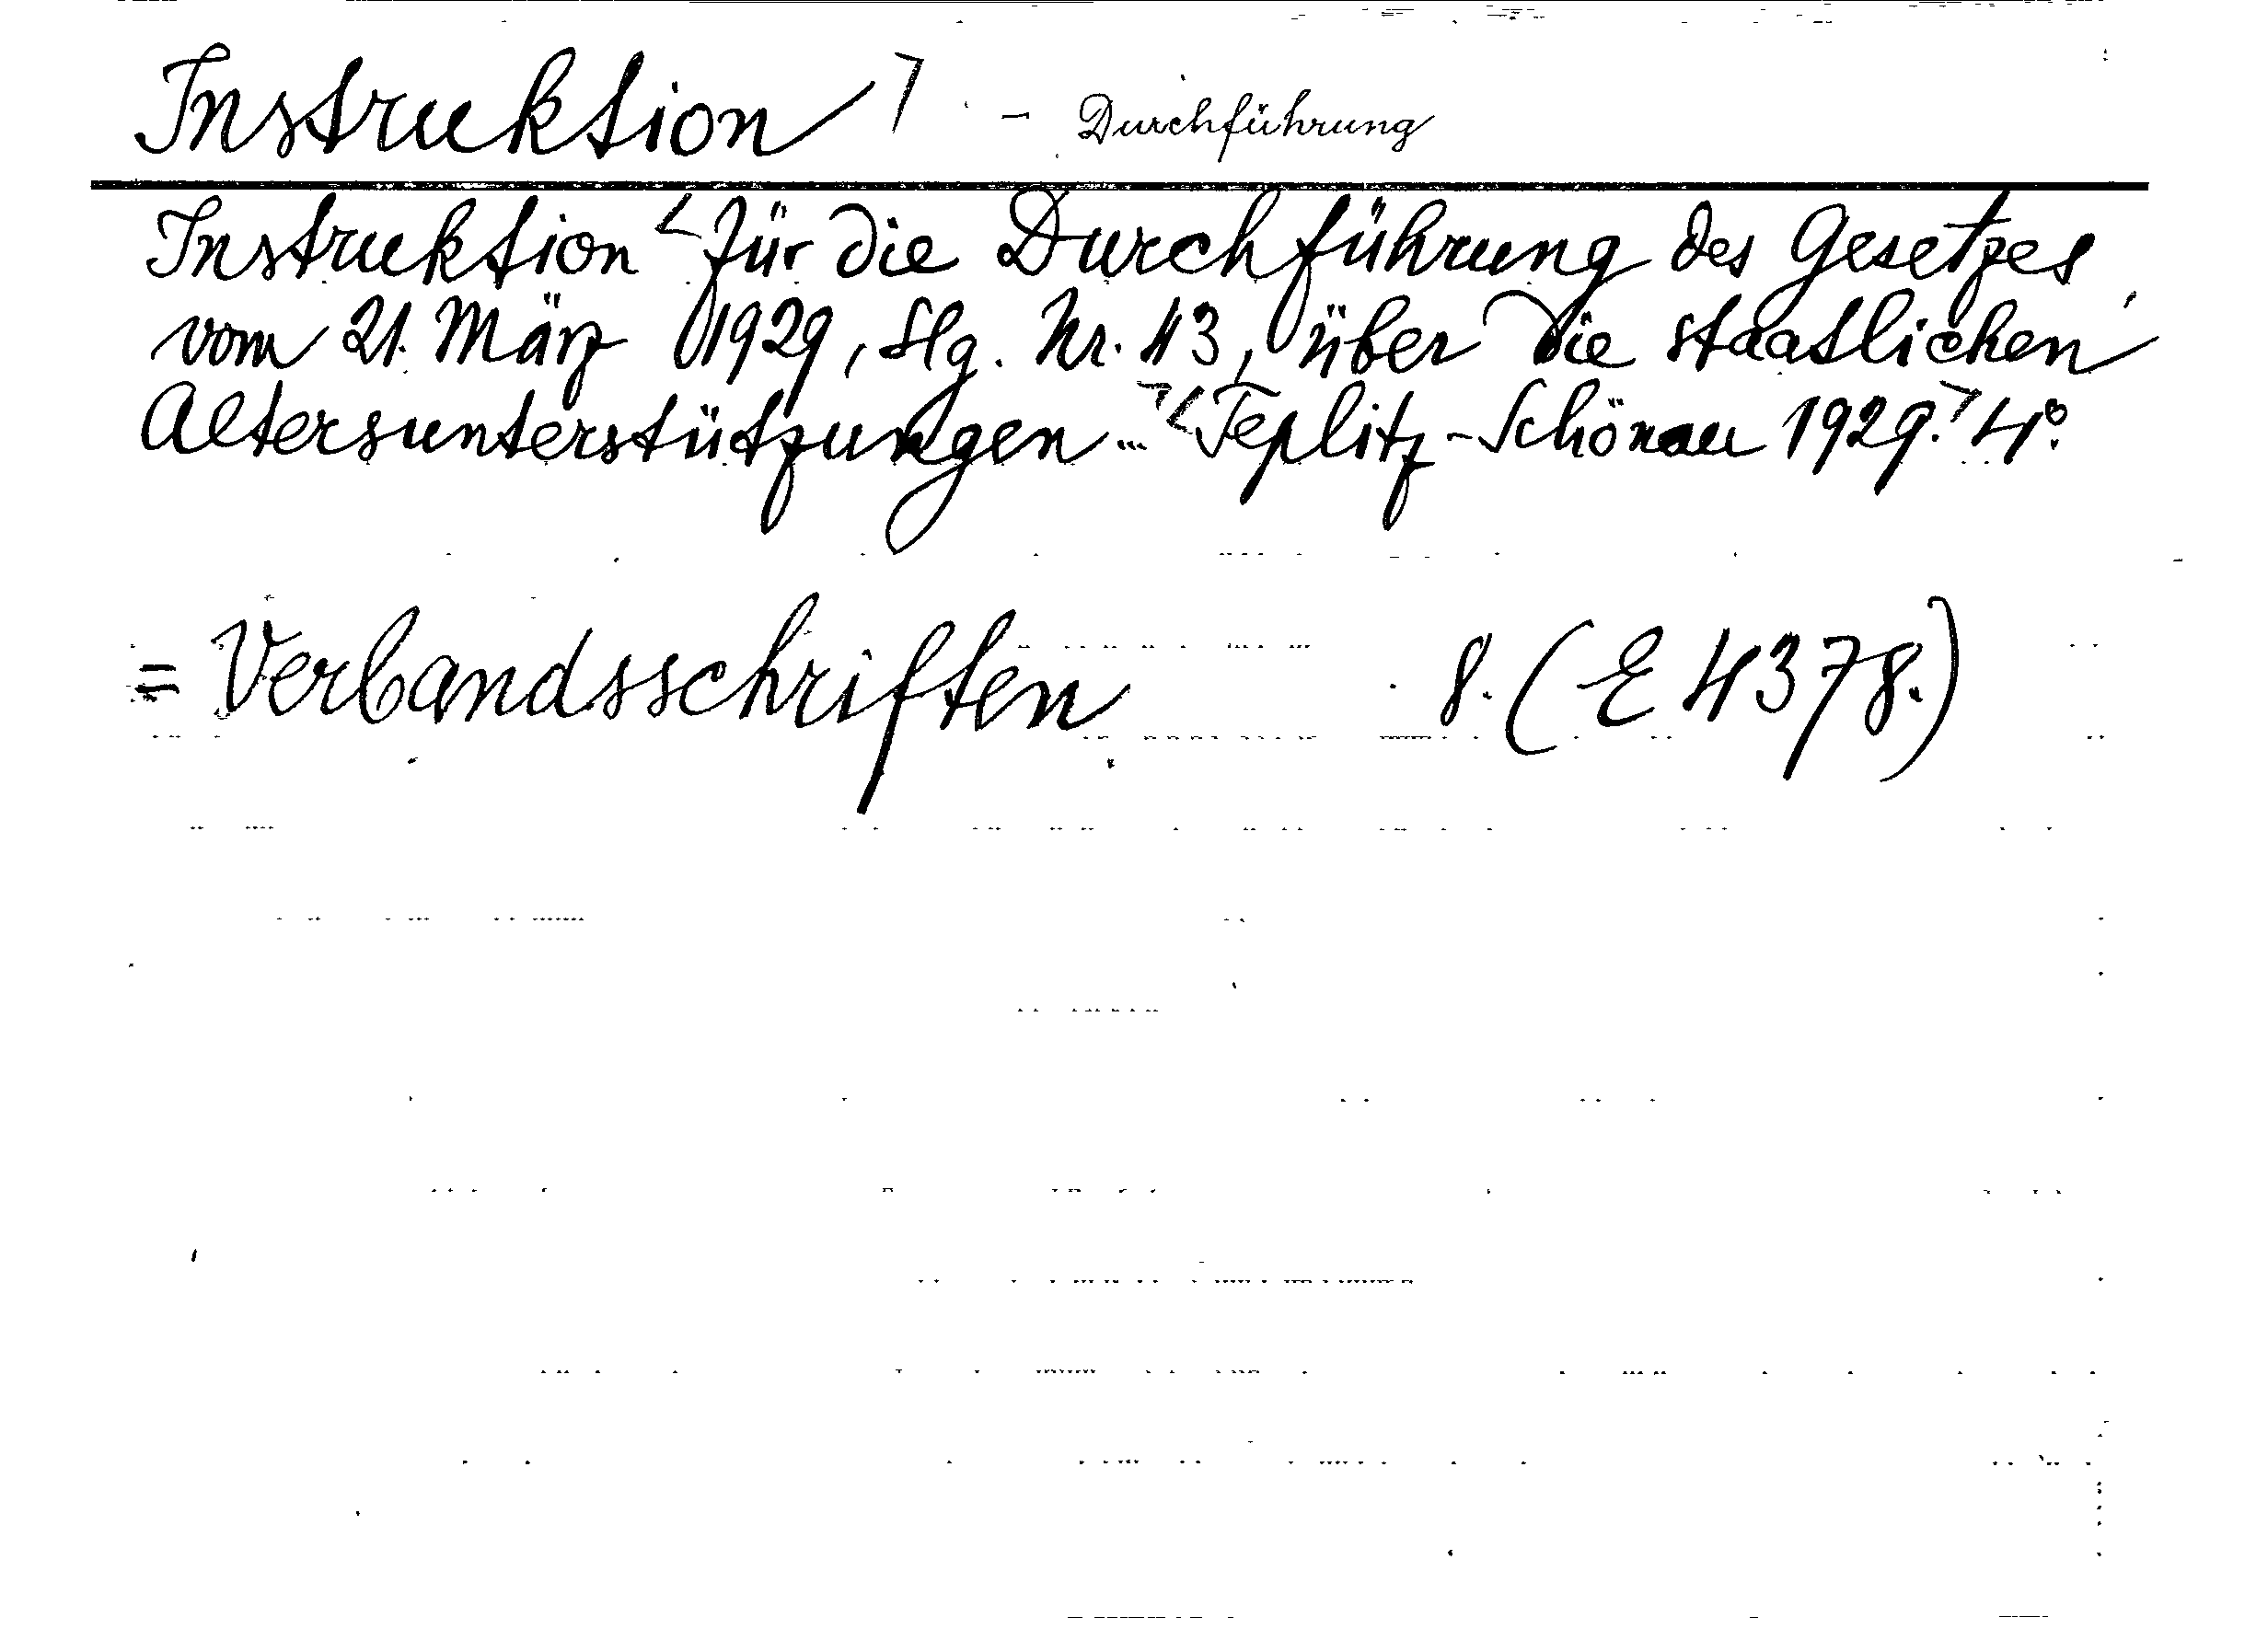 Instruktion ⌉ - Durchführung
Instruktion < für die Durchführung des Gesetzes
vom 21. März 1929, Slg. Nr. 43, über die staatlichen
Altersunterstützungen... ⌉ < Teplitz-Schönau 1929. ⌉ 4°.
= Verbandsschriften 8. (E 4378.)